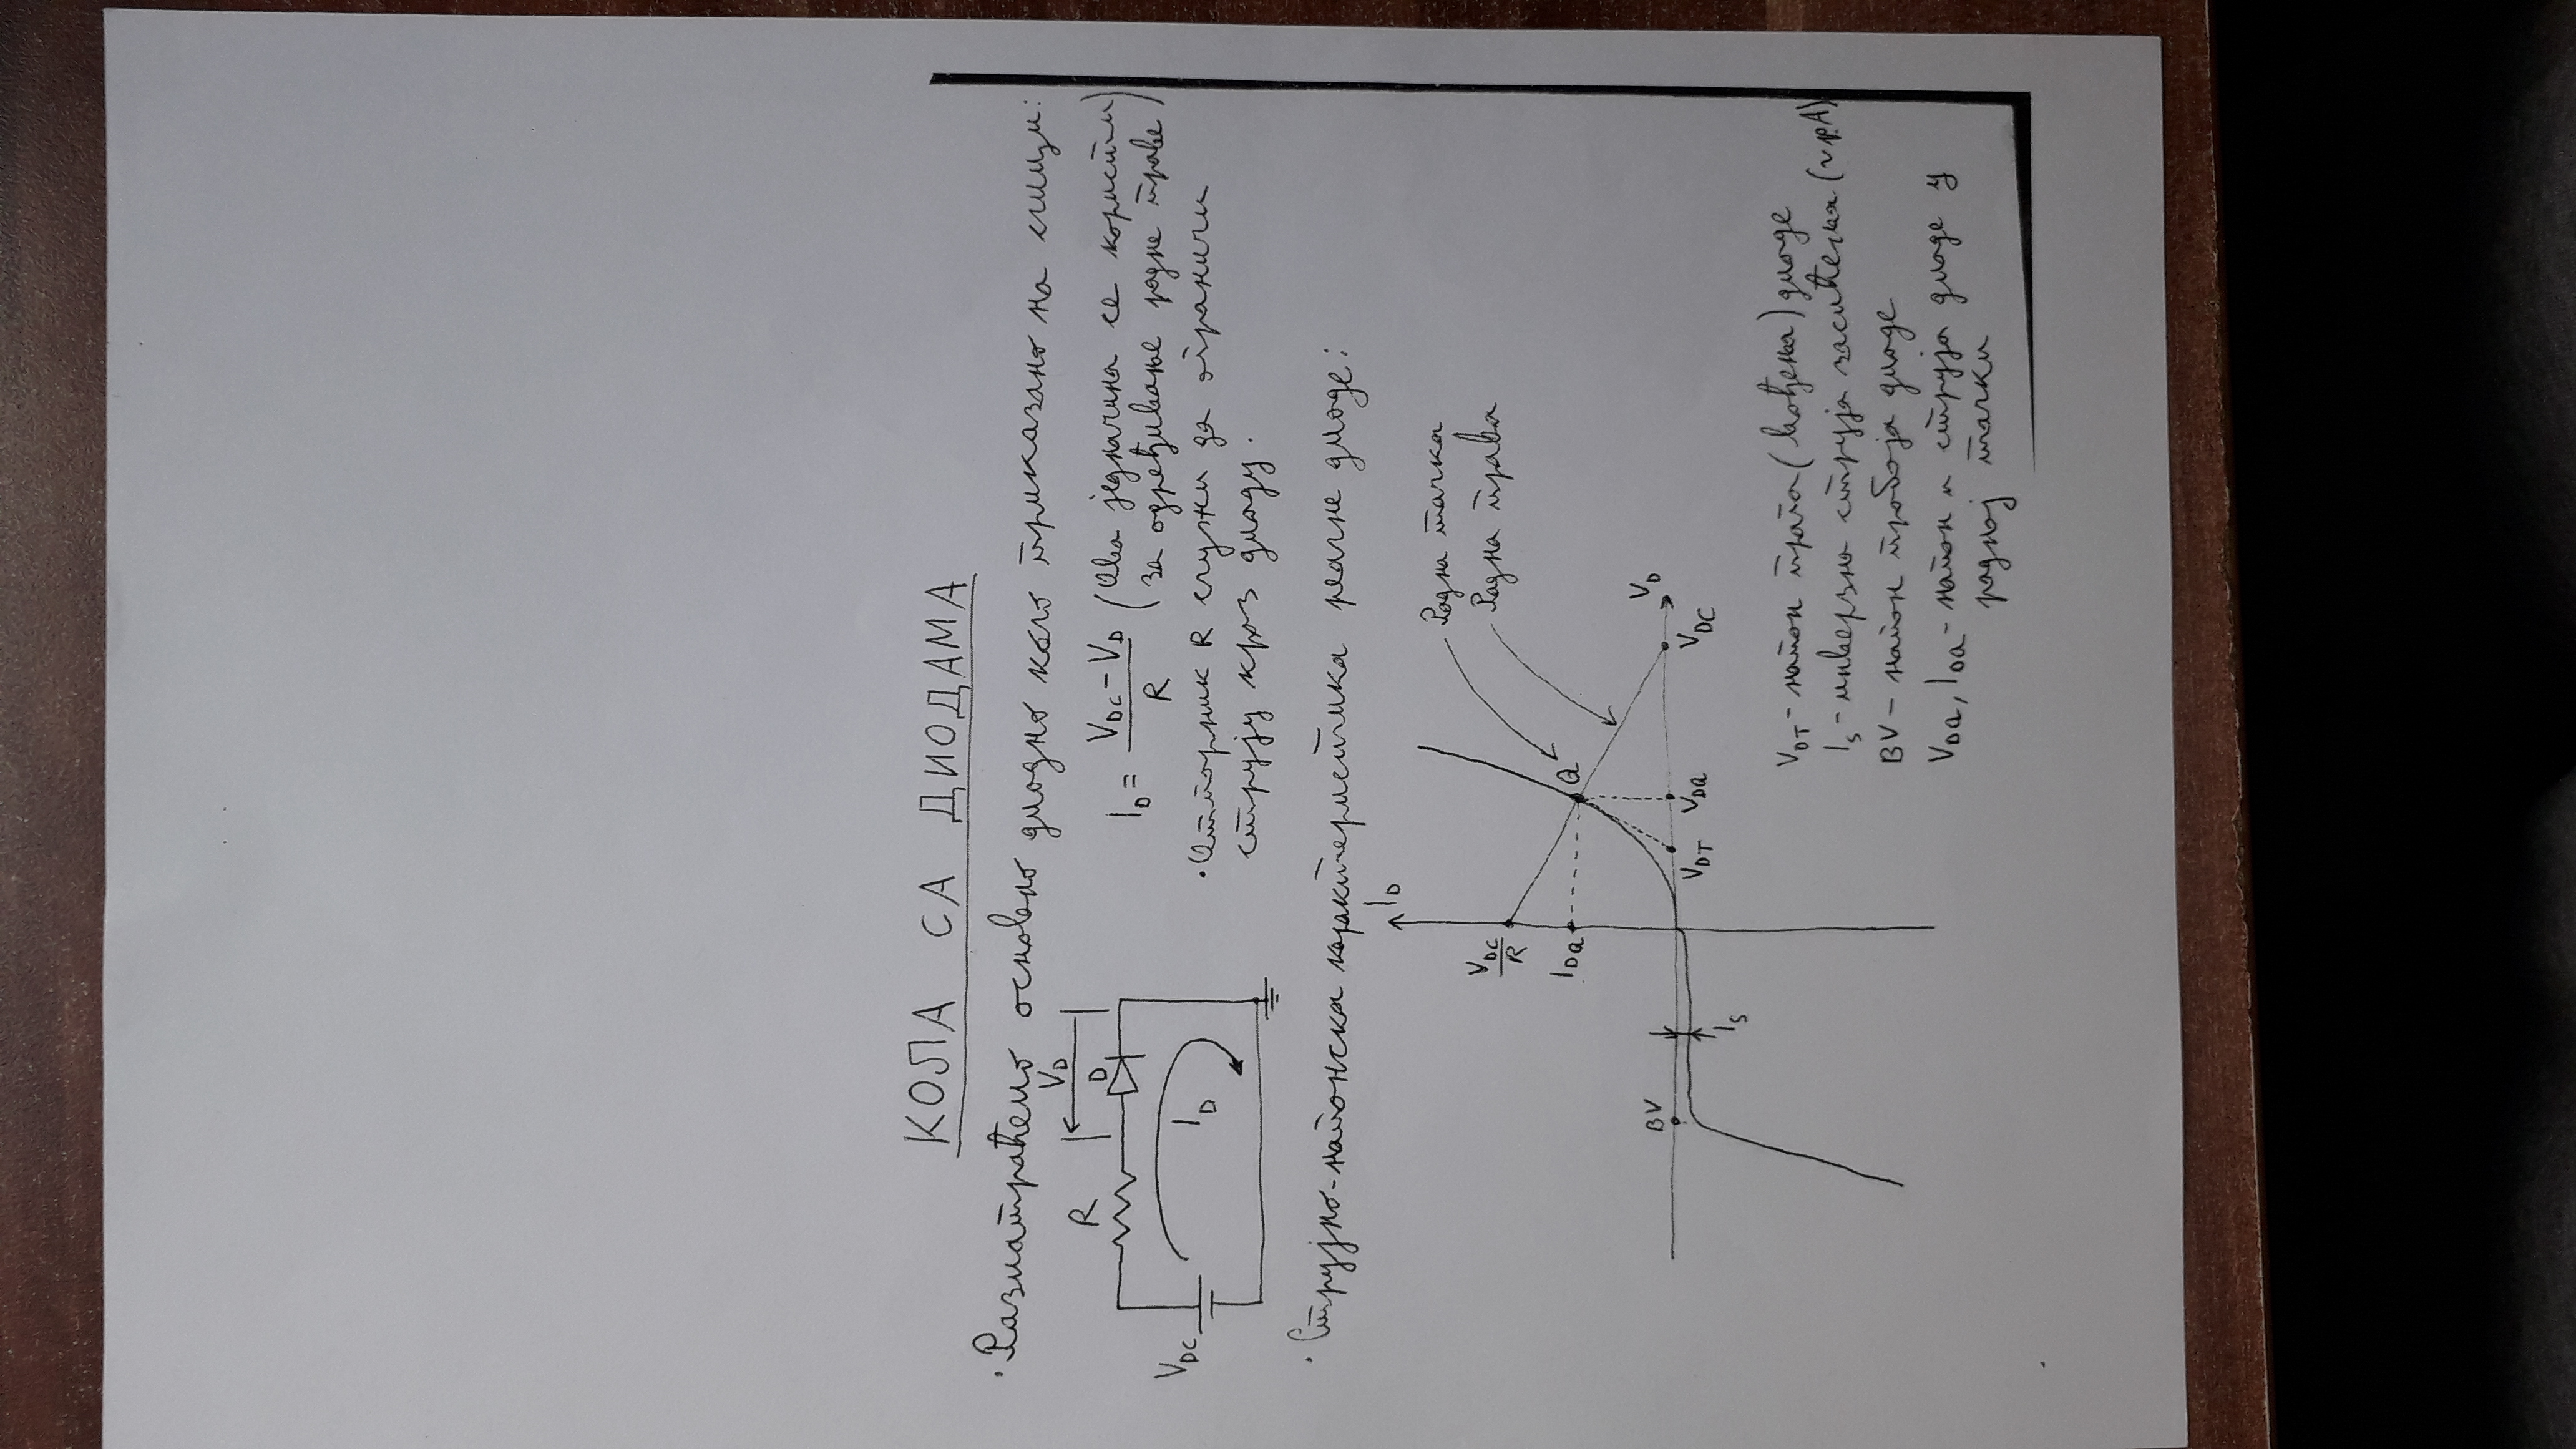 КОЛА СА ДИОДАМА
• Разматраћемо основно диодно коло приказано на слици:
V_D
R D
V_DC
I_D
I_D = (V_DC - V_D) / R (Ова једначина се користи
за одређивање радне праве)
• Отпорник R служи да ограничи
струју кроз диоду.
• Струјно-напонска карактеристика реалне диоде:
I_D
Радна тачка
V_DC / R
Радна права
I_DQ
Q
BV
V_D
V_DT V_DQ V_DC
I_S
V_DT - напон прага (вођења) диоде
I_S - инверзна струја засићења (~pA)
BV - напон пробоја диоде
V_DQ, I_DQ - напон и струја диоде у
радној тачки